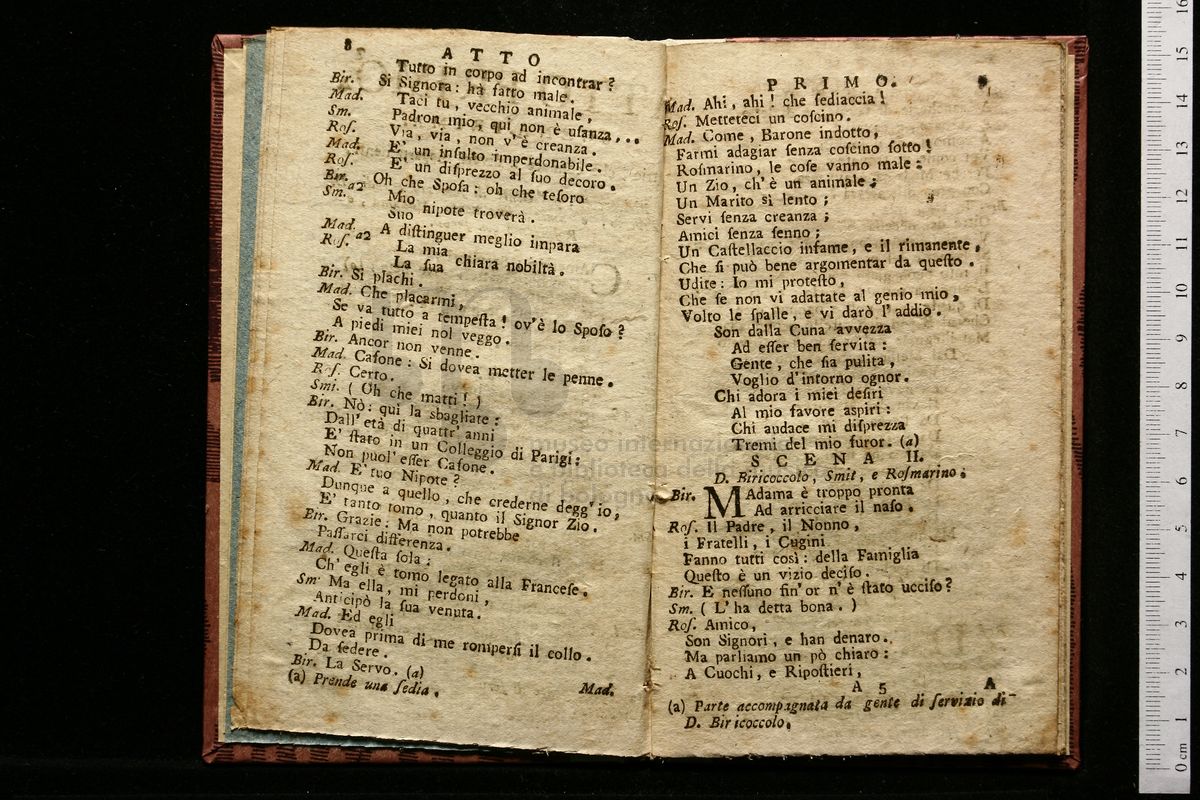 8
ATTO
Tutto in corpo ad incontrar?
Bir. Si Signora: hà fatto male.
Mad. Taci tu, vecchio animale,
Sm. Padron mio, qui non è uſanza,...
Roſ. Via, via, non v'è creanza.
Mad. E' un inſulto imperdonabile.
Roſ. E' un diſprezzo al ſuo decoro.
Bir. Sm. a2 Oh che Spoſa: oh che teſoro
Mio
Suo nipote troverà.
Mad. Roſ. a2 A diſtinguer meglio impara
La mia
La ſua chiara nobiltà.
Bir. Si plachi.
Mad. Che placarmi,
Se va tutto a tempeſta! ov'è lo Spoſo?
A piedi miei nol veggo.
Bir. Ancor non venne.
Mad. Caſone: Si dovea metter le penne.
Roſ. Certo.
Smi. (Oh che matti!)
Bir. Nò: qui la sbagliate:
Dall' età di quattr' anni
E' ſtato in un Colleggio di Parigi:
Non puol' eſſer Caſone.
Mad. E' tuo Nipote?
Dunque a quello, che crederne degg' io,
E' tanto tomo, quanto il Signor Zio.
Bir. Grazie: Ma non potrebbe
Paſſarci differenza.
Mad. Queſta ſola:
Ch' egli è tomo legato alla Franceſe.
Sm. Ma ella, mi perdoni,
Anticipò la ſua venuta.
Mad. Ed egli
Dovea prima di me romperſi il collo.
Da ſedere.
Bir. La Servo. (a)
(a) Prende una ſedia.
Mad.
PRIMO.
9
Mad. Ahi, ahi! che ſediaccia!
Roſ. Metteteci un coſcino.
Mad. Come, Barone indotto,
Farmi adagiar ſenza coſcino ſotto!
Roſmarino, le coſe vanno male:
Un Zio, ch' è un animale;
Un Marito sì lento;
Servi ſenza creanza;
Amici ſenza ſenno;
Un Caſtellaccio infame, e il rimanente,
Che ſi può bene argomentar da queſto.
Udite: Io mi proteſto,
Che ſe non vi adattate al genio mio,
Volto le ſpalle, e vi darò l'addio.
Son dalla Cuna avvezza
Ad eſſer ben ſervita:
Gente, che ſia pulita,
Voglio d'intorno ognor.
Chi adora i miei deſiri
Al mio favore aspiri:
Chi audace mi diſprezza
Tremi del mio furor. (a)
SCENA II.
D. Biricoccolo, Smit, e Roſmarino.
Bir. MAdama è troppo pronta
Ad arricciare il naſo.
Roſ. Il Padre, il Nonno,
i Fratelli, i Cugini
Fanno tutti così: della Famiglia
Queſto è un vizio deciſo.
Bir. E neſſuno fin' or n' è ſtato ucciſo?
Sm. (L' ha detta bona.)
Roſ. Amico,
Son Signori, e han denaro.
Ma parliamo un pò chiaro:
A Cuochi, e Ripoſtieri,
A 5
A
(a) Parte accompagnata da gente di ſervizio di
D. Biricoccolo.